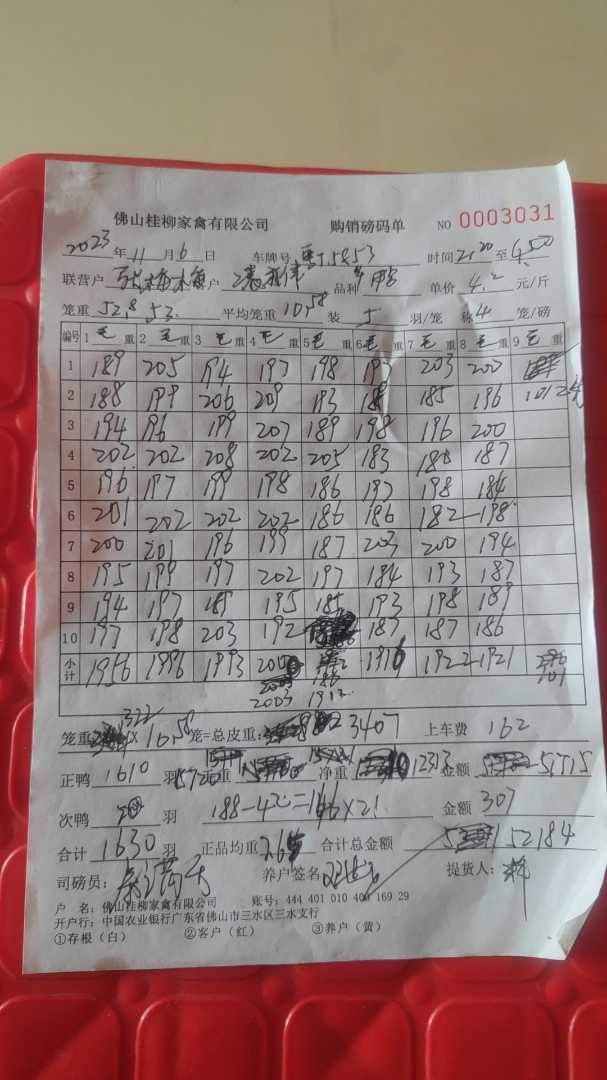 佛山桂柳家禽有限公司 购销磅码单 NO 0003031
2023年11月6日 车牌号 5853 时间2:20至4:50
联营户 户 品种 单价4.2元/斤
笼重 52.8 53 平均笼重 10.58 装5羽/笼 称4笼/磅
编号 1毛重 2毛重 3毛重 4毛重 5毛重 6毛重 7毛重 8毛重 9毛重
1 189 205 194 197 198 197 203 200
2 188 199 206 209 193 185 196
3 194 196 199 207 189 198 196 200
4 202 202 208 202 205 183 188 187
5 196 197 199 198 186 197 198 184
6 201 202 202 202 186 186 182 198
7 200 201 196 199 187 203 200 194
8 195 199 197 202 197 184 193 187
9 194 197 189 195 185 193 198 189
10 197 198 203 192 187 187 186
小计 1956 1996 1993 1916 1922 1921
2003 1912
笼重 322×10.58笼=总皮重: 3407 上车费 162
正鸭 1610羽 重 净重 12313 金额 51715
次鸭 羽 金额 307
合计 1630羽 正品均重 7.65 合计总金额 52184
司磅员: 养户签名 提货人:
户 名:佛山桂柳家禽有限公司 账号:444 401 010 400 169 29
开户行:中国农业银行广东省佛山市三水区三水支行
①存根(白) ②客户(红) ③养户(黄)